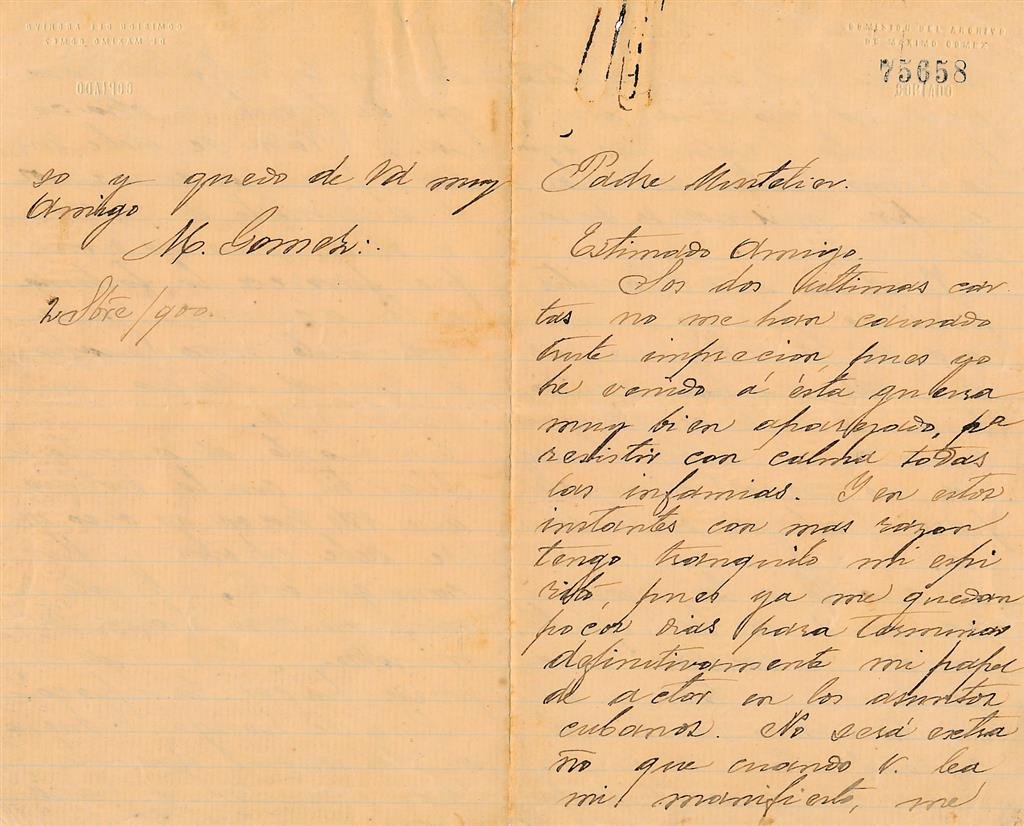 COMISION DEL ARCHIVO
DE MAXIMO GOMEZ
75658
COPIADO
Padre
Estimado Amigo.
Sos dos ultimas car
tas no me han causado
triste imprecion, pues yo
he venido á ésta guerra
muy bien aparejado, pa
resistir con calma todas
las infamias. Y en estos
instantes con mas razon
tengo tranquilo mi espi
ritu, pues ya me quedan
pocos dias para terminar
definitivamente mi papel
de actor en los asuntos
cubanos. No será extra
ño que cuando V. lea
mi manifiesto, me
COMISION DEL ARCHIVO
DE MAXIMO GOMEZ
COPIADO
so y quedo de Vd muy
Amigo
M. Gomez.
2 /900.